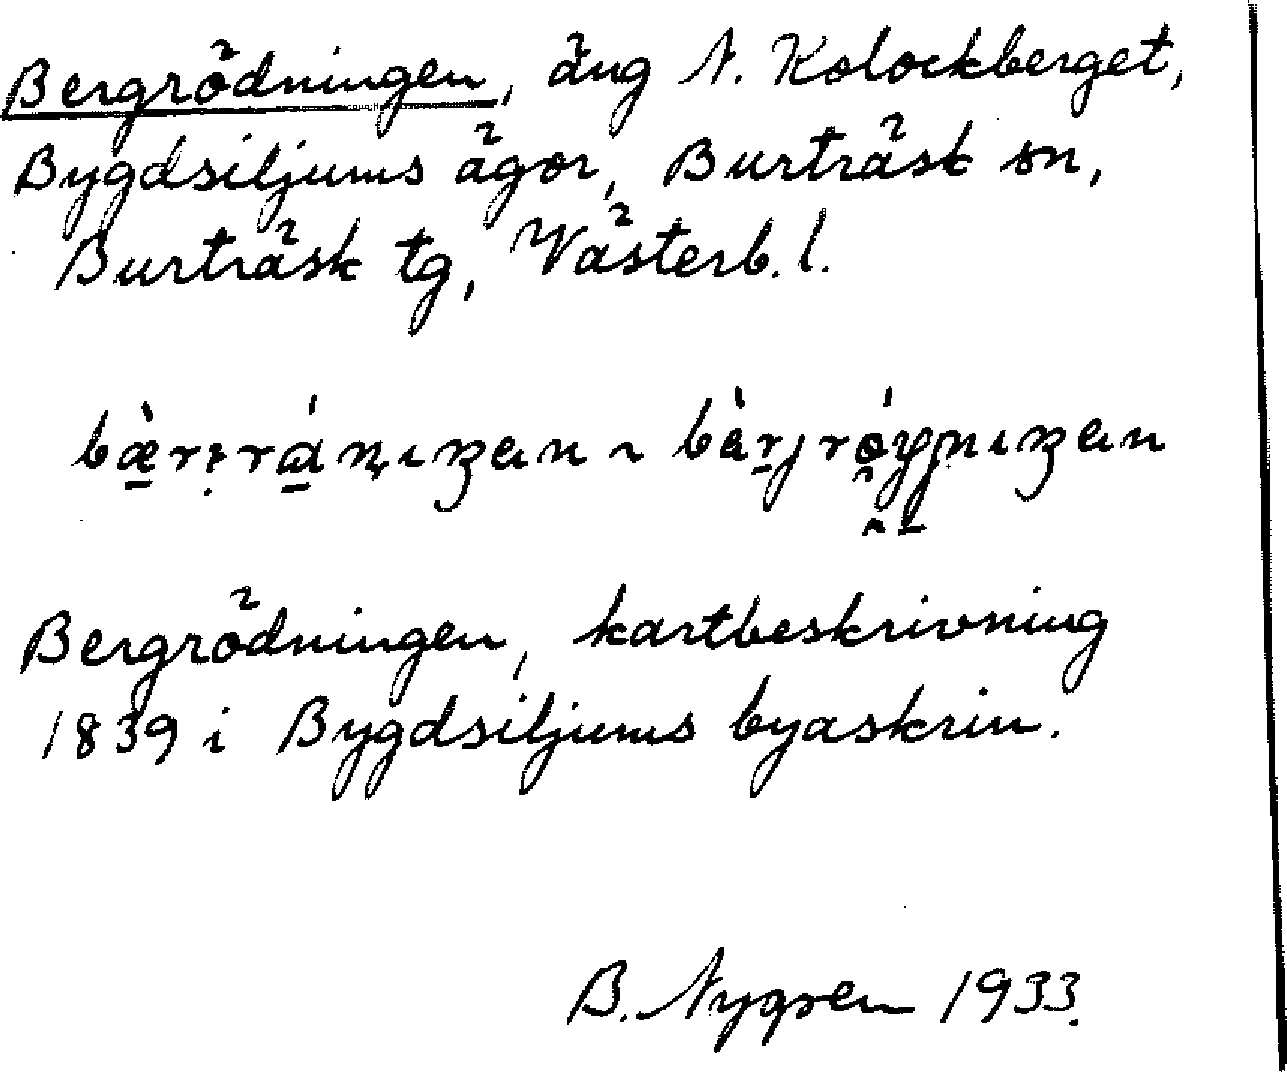 Bergrödningen, äng N. Kolockberget,
Bygdsiljums ägor, Burträsk sn,
Burträsk tg, Västerb. l.
Bergrödningen, kartbeskrivning
1839 i Bygdsiljums byaskrin.
B. Nygren 1933.